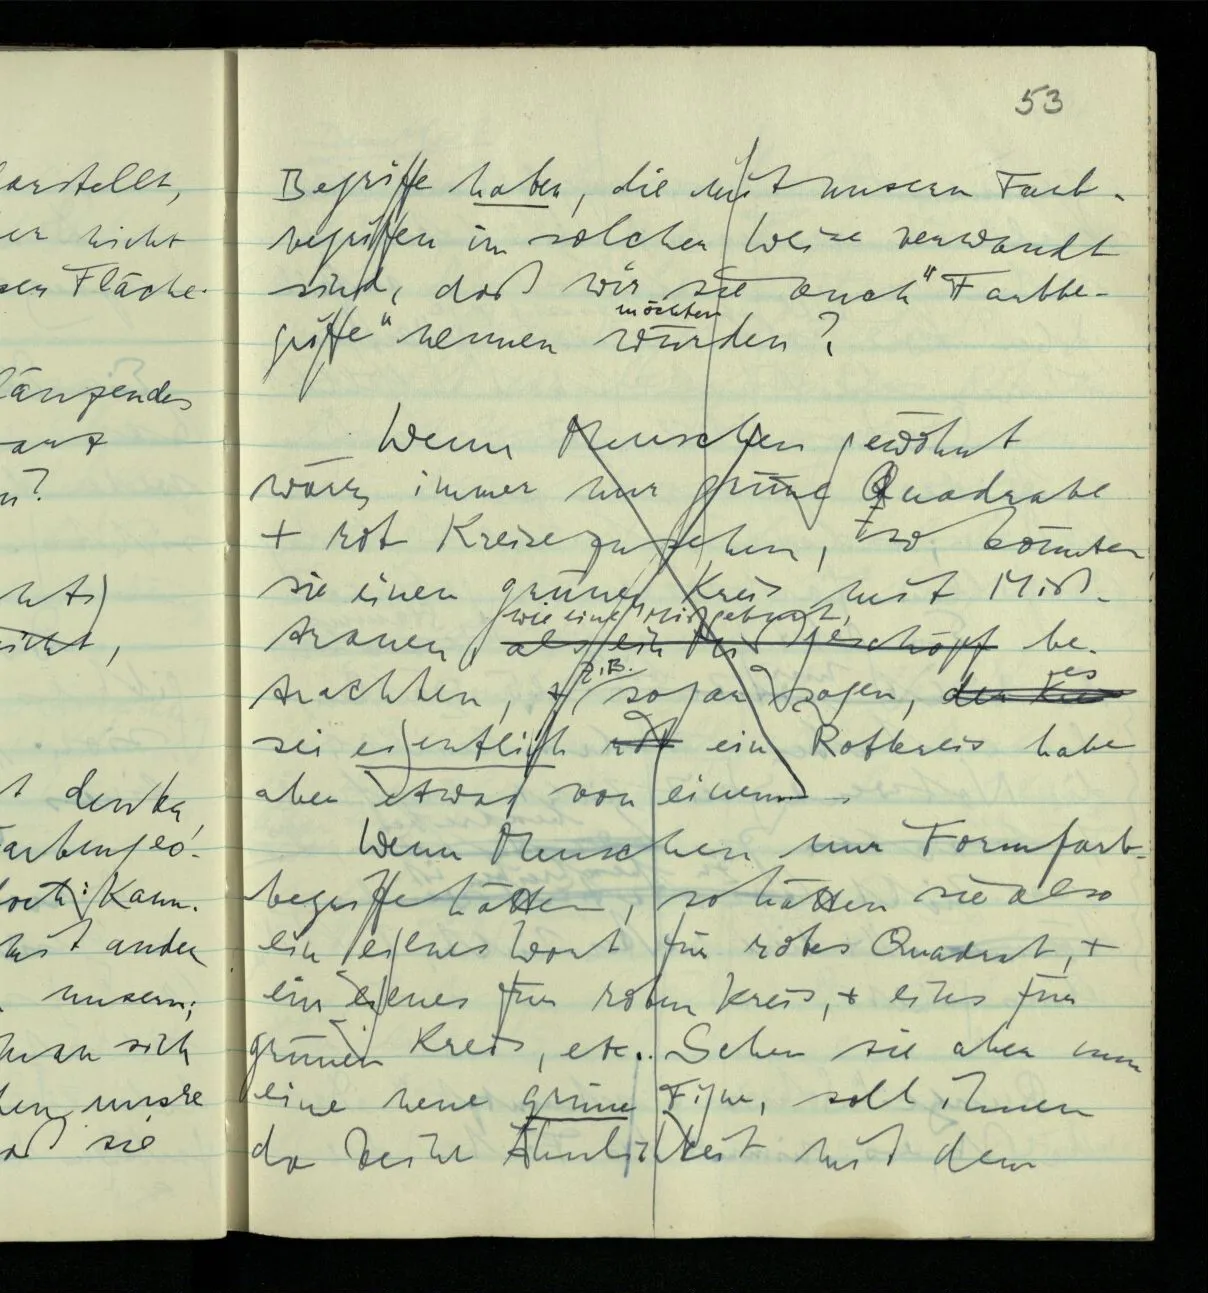 53
Begriffe haben, die mit unsern Farb-
begriffen in solcher Weise verwandt
sind, daß wir sie auch "Farbbe-
möchten
griffe" nennen würden?
Wenn Menschen gewöhnt
wären, immer nur grüne Quadrate
+ rote Kreise zu sehen, so könnten
sie einen grünen Kreis mit Miß-
wie eine Mißgeburt,
trauen, als ein Mißgeschöpf be-
z.B. es
trachten, + sogar sagen, der Kreis
sei eigentlich rot ein Rotkreis habe
aber etwas von einem
Wenn Menschen nur Formfarb-
begriffe hätten, so hätten sie also
ein eigenes Wort für rotes Quadrat, +
ein eigenes für roten Kreis, + eins für
grünen Kreis, etc.. Sehen sie aber nun
eine neue grüne Figur, soll ihnen
da keine Ähnlichkeit mit dem
arstellt,
er nicht
Fläche.
länzendes
?
denken,
Kann.
mit andern
unsern;
man sich
unsre
sie